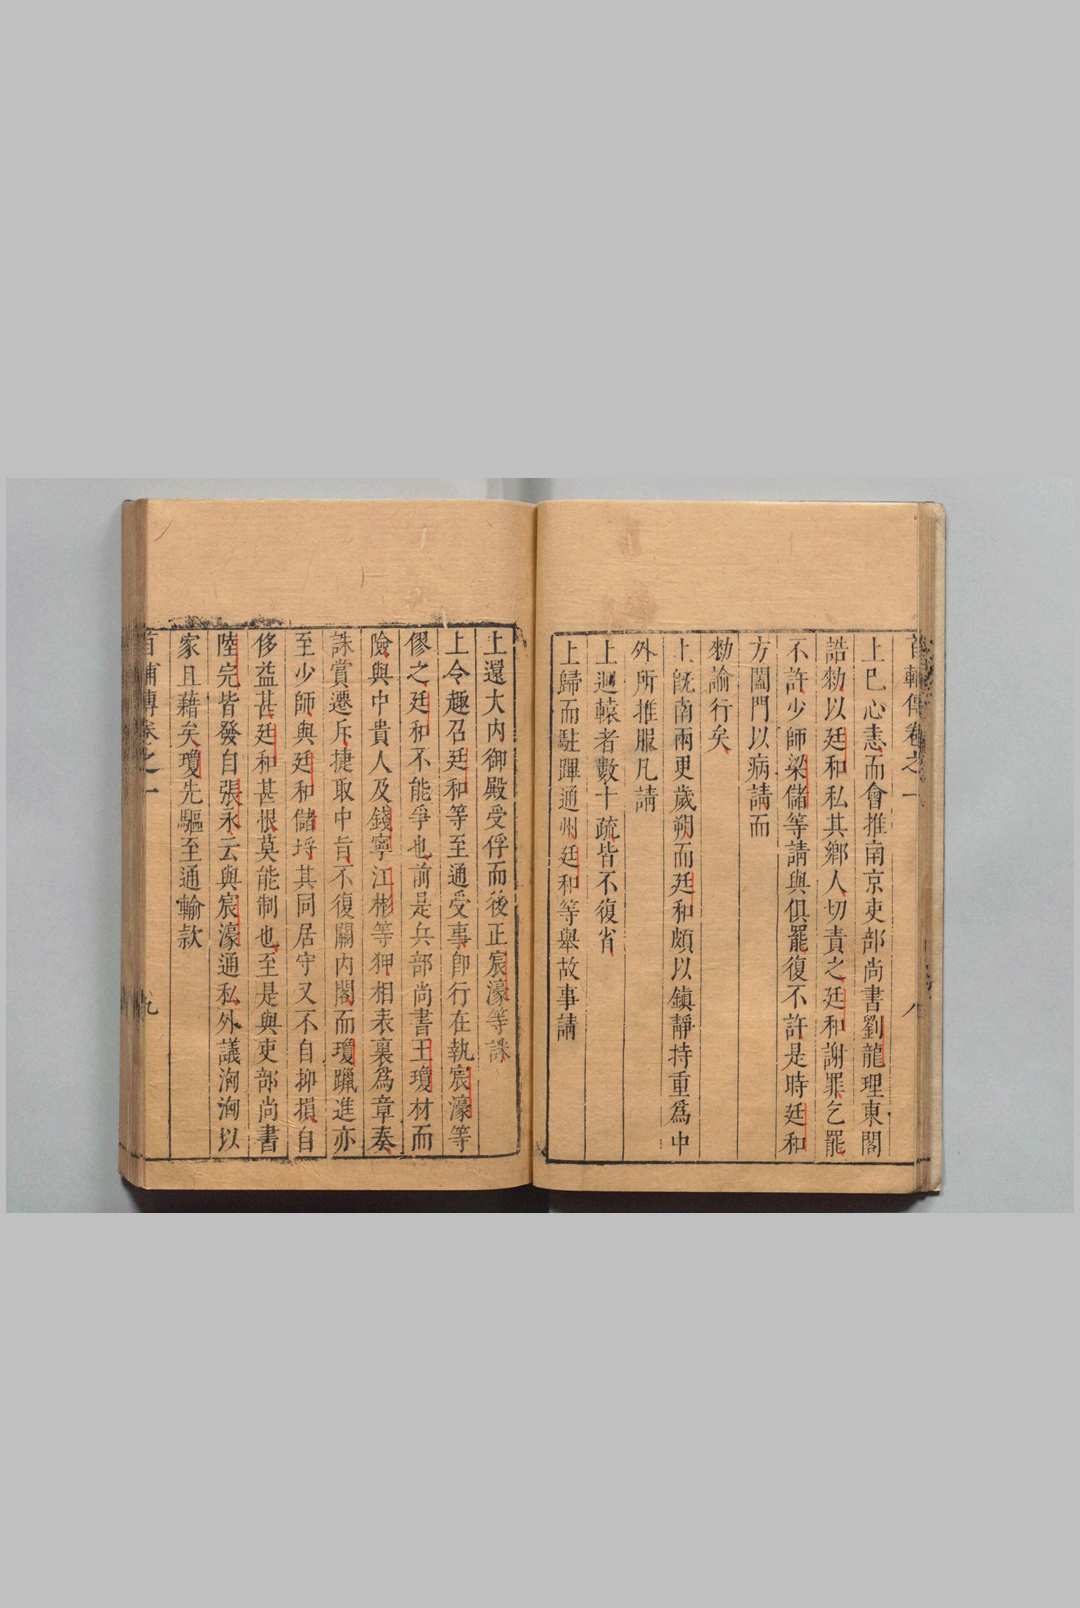 首輔傳卷之一 八
上已心恚而會推南京吏部尚書劉龍理東閣
誥勑以廷和私其鄉人切責之廷和謝罪乞罷
不許少師梁儲等請與俱罷復不許是時廷和
方闔門以病請而
勑諭行矣
上旣南兩更歲朔而廷和頗以鎮靜持重爲中
外所推服凡請
上廻轅者數十疏皆不復省
上歸而駐蹕通州廷和等舉故事請
上還大内御殿受俘而後正宸濠等誅
上令趣召廷和等至通受事卽行在執宸濠等
僇之廷和不能爭也前是兵部尚書王瓊材而
險與中貴人及錢寧江彬等狎相表裏爲章奏
誅賞遷斥捷取中旨不復關内閣而瓊躐進亦
至少師與廷和儲埒其同居守又不自抑損自
侈益甚廷和甚恨莫能制也至是與吏部尚書
陸完皆發自張永云與宸濠通私外議洶洶以
家且藉矣瓊先驅至通輸款
首輔傳卷之一 九